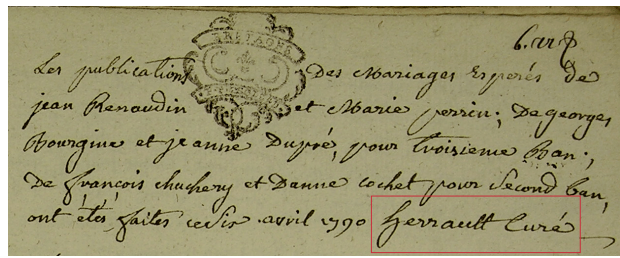 6. avr
BRETAGNE
Les publications Des Mariages Esperés de
jean Renaudin et Marie perrin; De georges
Bourgine et jeanne Dupré, pour troisieme Ban;
De françois chuchery et Danne cochet pour second ban,
ont étés faites ce six avril 1790 herrault Curé